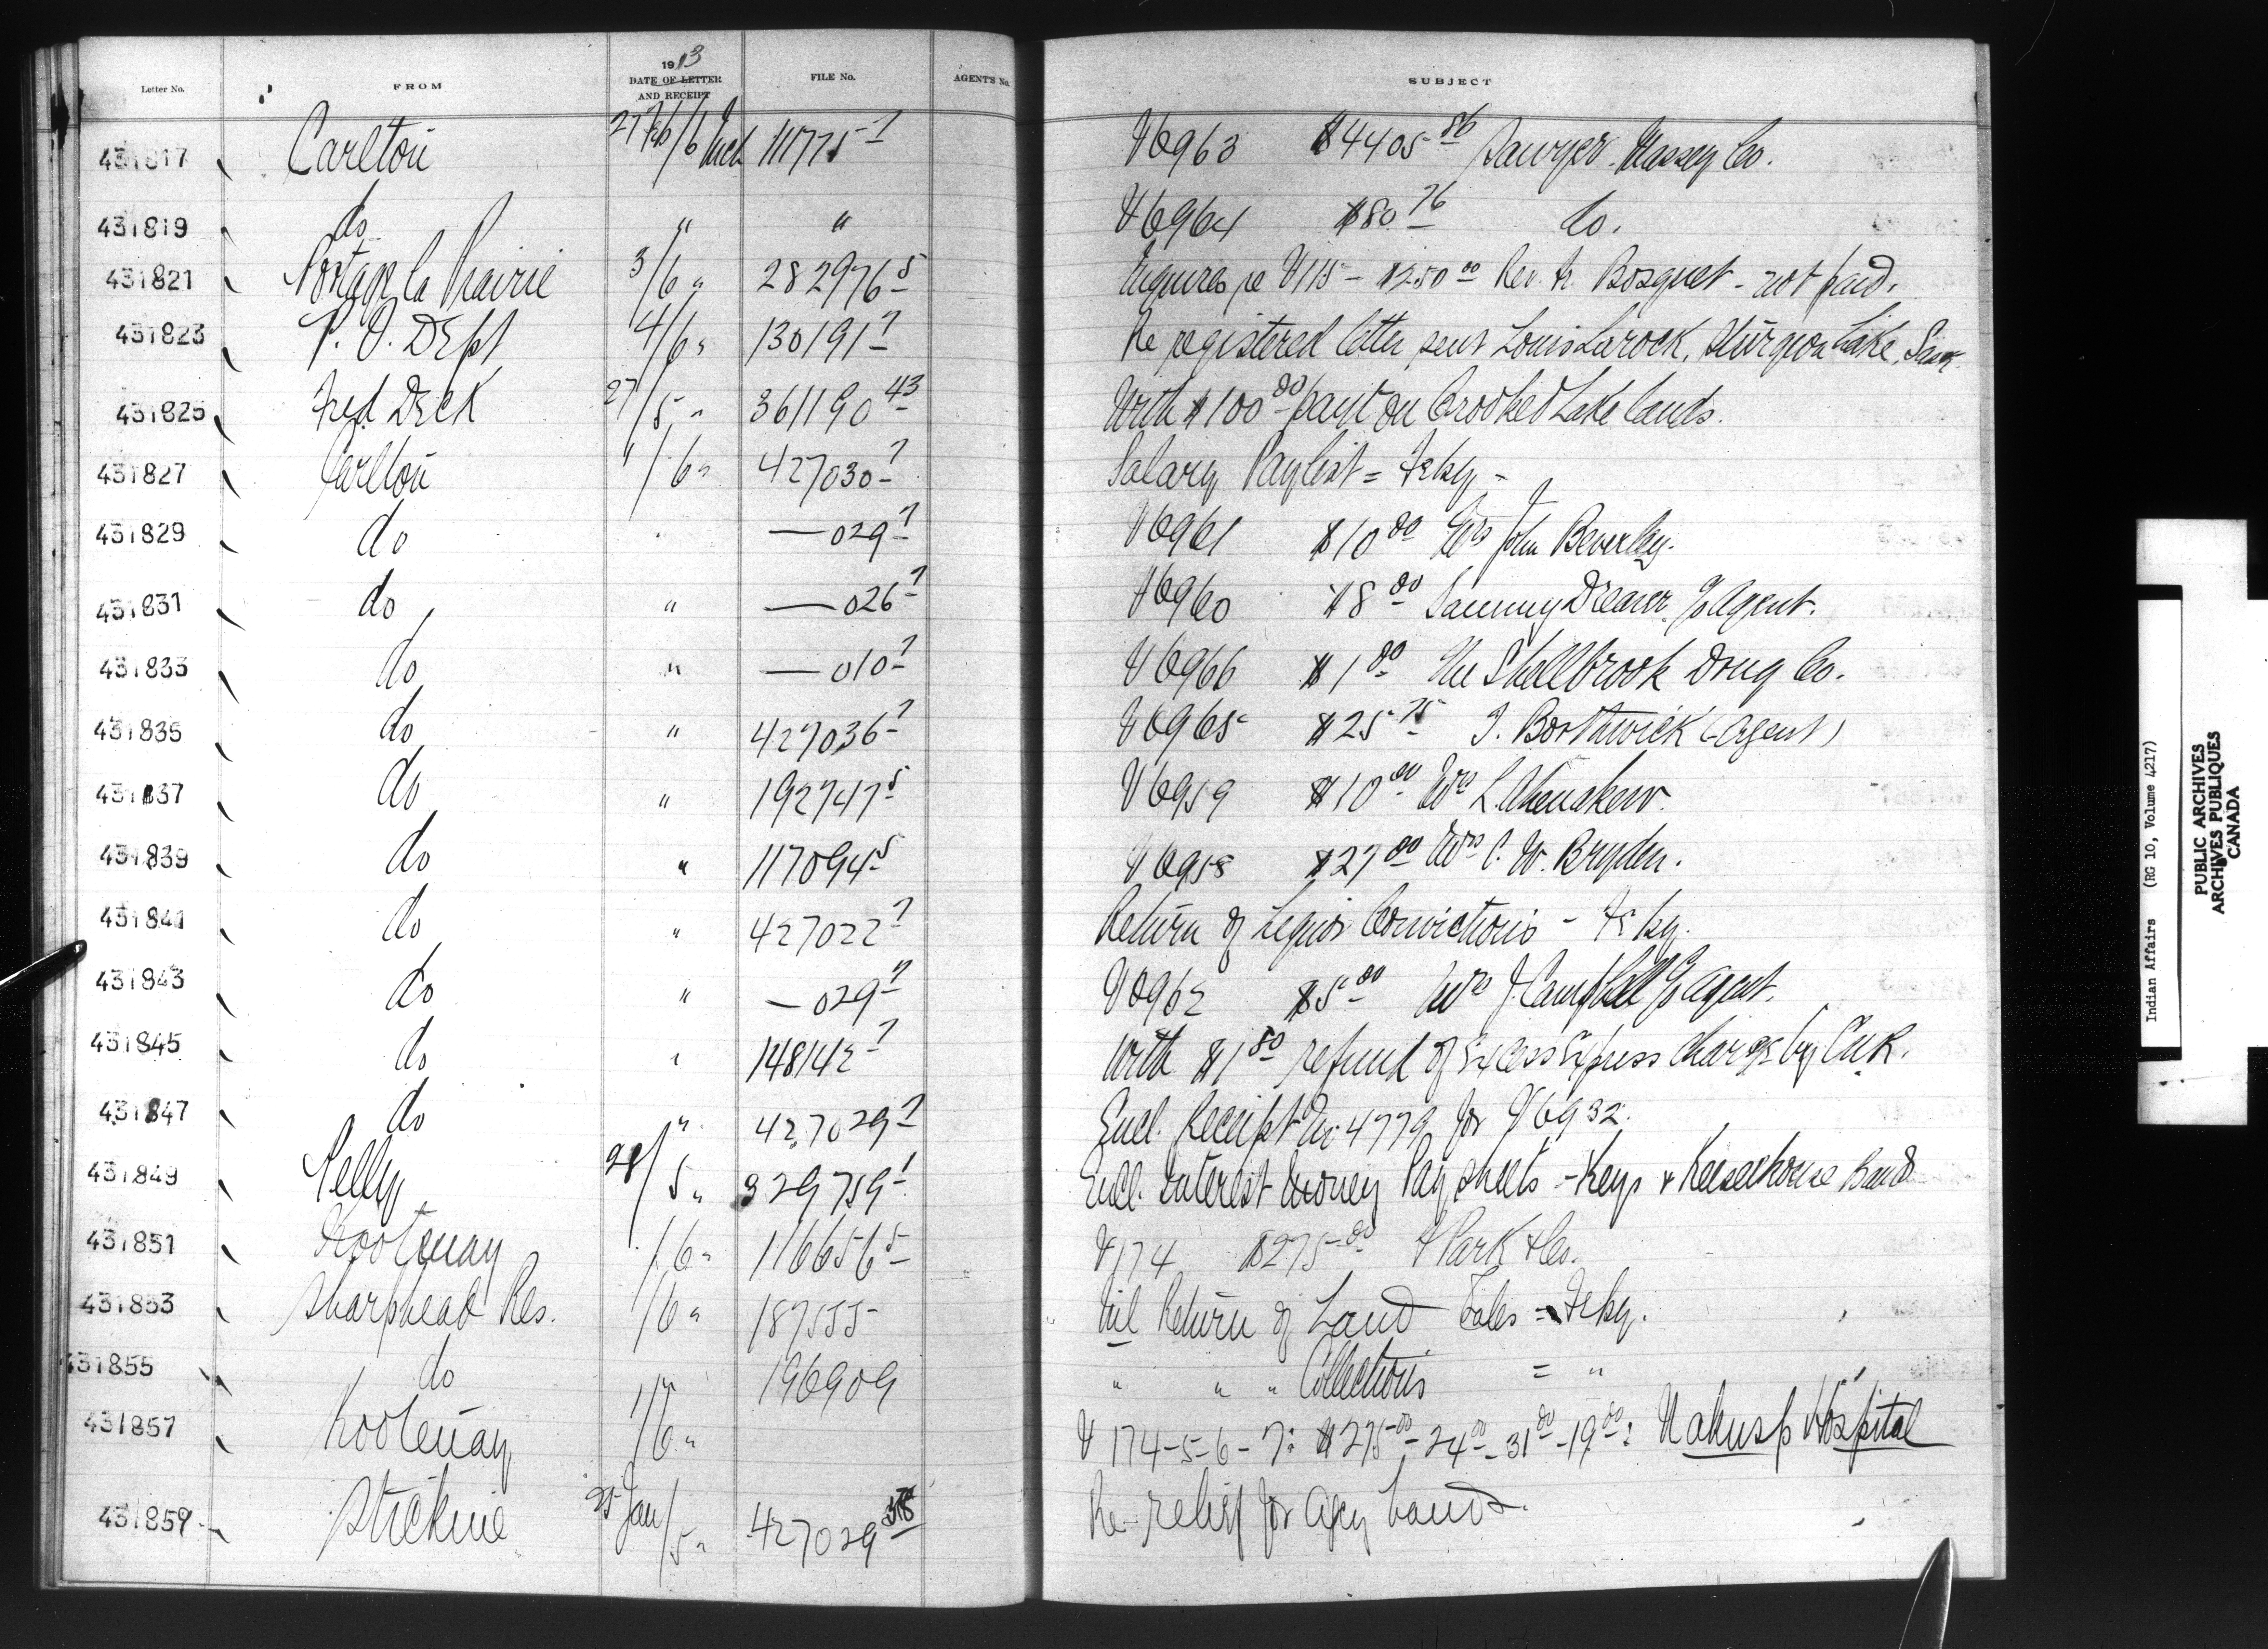 Letter No. FROM 1913 DATE OF LETTER AND RECEIPT FILE No. AGENT'S No. SUBJECT
431817 Carlton 27 Feb/6 Mch 111775-7 V6963 $4405.86 Sawyer Massey Co.
431819 do " " V6964 $80.76 do.
431821 Portage la Prairie 3/6 " 282976-5 Inquires re V115 - $250.00 Rev. Fr. Bosquet - not paid.
431823 P. O. Dept 4/6 " 130191-7 Re registered letter sent Louis Larock, Sturgeon Lake, Sask.
431825 Fred Deck 27/5 " 361190-43 With $100.00 payt on Crooked Lake lands.
431827 Carlton 1/6 " 427030-7 Salary Paylist = Feby -
431829 do " — 029-7 V6961 $10.00 Wrs John Beverley.
431831 do " — 026-7 V6960 $8.00 Sammy Dreaver c/o Agent.
431833 do " — 010-7 V6966 $1.00 The Shellbrook Drug Co.
431835 do " 427036-7 V6965 $25.75 T. Borthwick (Agent)
431837 do " 192747-5 V6959 $10.00 Wrs L. Ahenakew.
431839 do " 117094-5 V6958 $27.00 Wrs C. W. Bryden.
431841 do " 427022-7 Return of Liquor Convictions - Feby.
431843 do " — 029-7 V6962 $5.00 Wrs J. Campbell c/o Agent.
431845 do " 148142-7 With $1.80 refund of Excess Express Charge by C.N.R.
431847 do " 427029-7 Encl. Receipt No 4779 for V6932.
431849 Pelly 28/5 " 329759-1 Encl. Interest Money Pay Sheets - Keys & Keeseekouse Bands
431851 Kootenay 1/6 " 116656-5 V174 $275.00 Park & Co.
431853 Sharphead Res. 1/6 " 187555 Nil Return of Land Sales = Feby.
431855 do " 196909 " " " Collections = "
431857 Kootenay 1/6 " V 174-5-6-7: $275.00 - 24.00 - 31.00 - 19.00: Nakusp Hospital
431859 Stickine 25 Jan/5 " 427029 Re relief for Agcy bands.
Indian Affairs (RG 10, Volume 4217)
PUBLIC ARCHIVES
ARCHIVES PUBLIQUES
CANADA